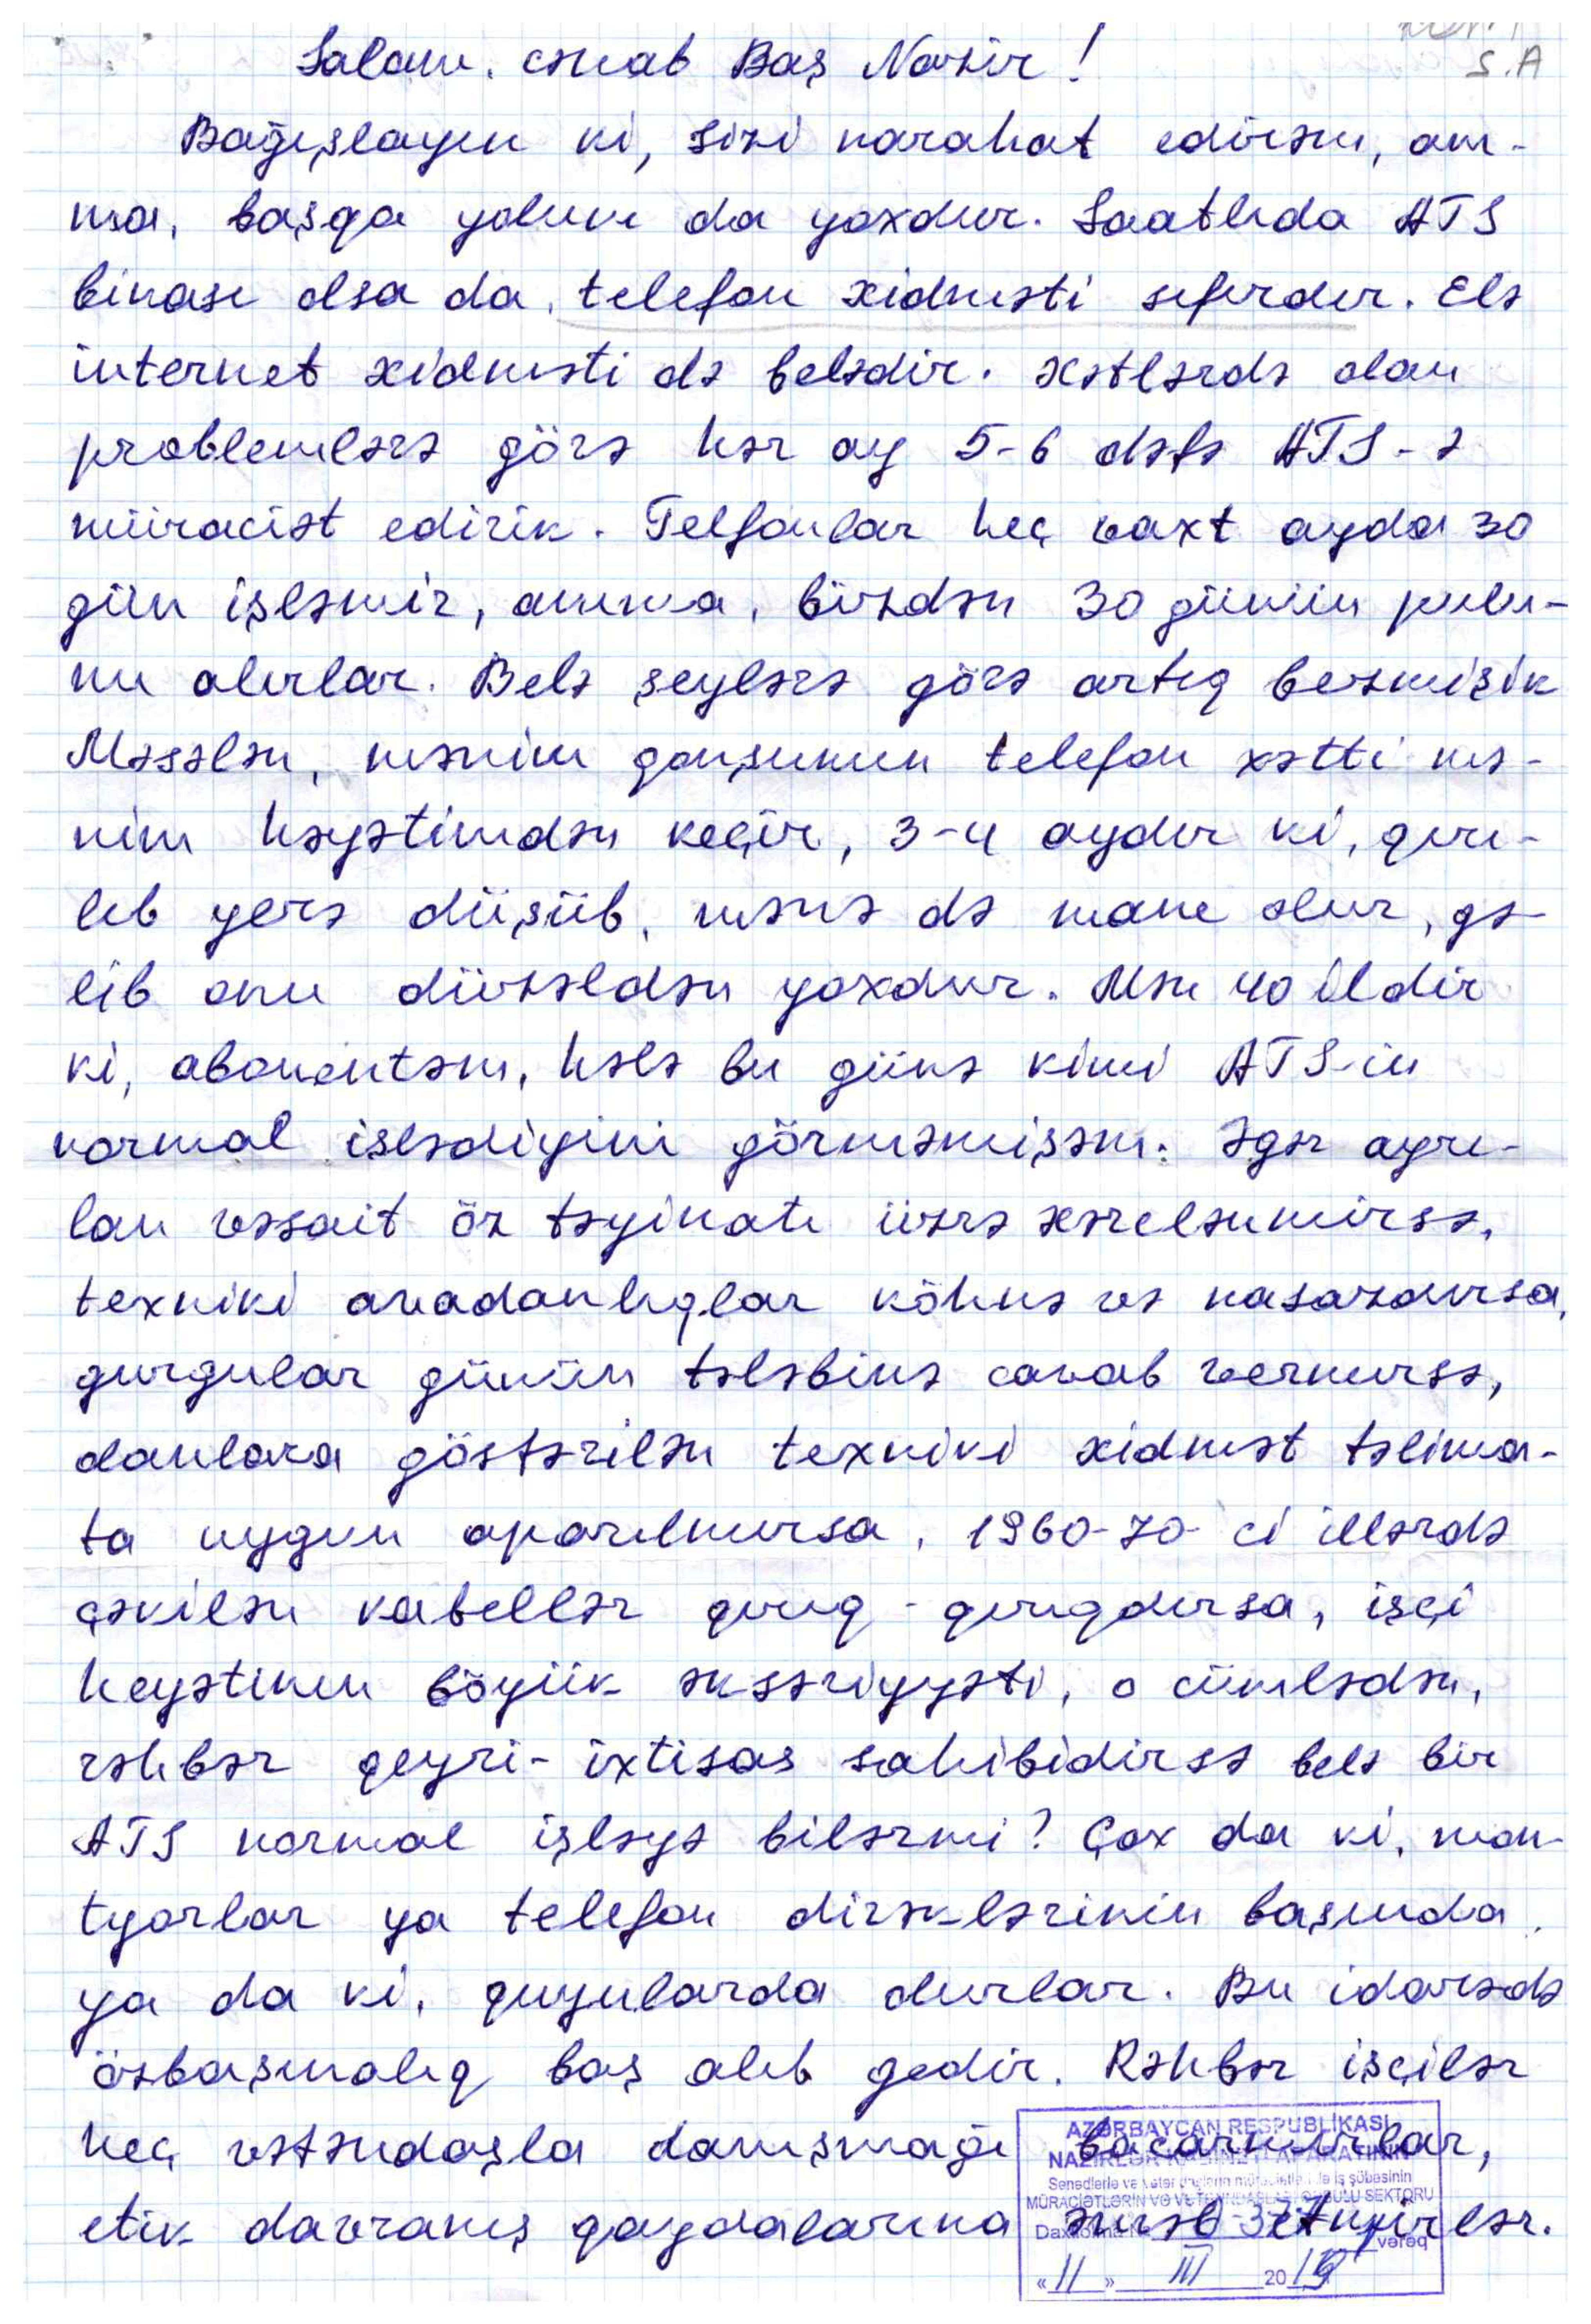 S.A
Salam, cənab Baş Nazir!
Bağışlayın ki, sizi narahat edirəm, am-
ma, başqa yolum da yoxdur. Saatlıda ATS
binası olsa da, telefon xidməti sıfırdır. Elə
internet xidməti də belədir. Xətlərdə olan
problemlərə görə hər ay 5-6 dəfə ATS-ə
müraciət edirik. Telfonlar heç vaxt ayda 30
gün işləmir, amma, bizdən 30 günün pulu-
nu alırlar. Belə şeylərə görə artıq bezmişik
Məsələn, mənim qonşumun telefon xətti mə-
nim həyətimdən keçir, 3-4 aydır ki, qırı-
lıb yerə düşüb, mənə də mane olur, gə-
lib onu düzəldən yoxdur. Mən 40 ildir
ki, abonentəm, hələ bu günə kimi ATS-in
normal işlədiyini görməmişəm. Əgər ayrı-
lan vəsait öz təyinatı üzrə xərclənmirsə,
texniki avadanlıqlar köhnə və nasazdırsa,
qurğular günün tələbinə cavab vermirsə,
olanlara göstərilən texniki xidmət təlima-
ta uyğun aparılmırsa, 1960-70-ci illərdə
çəkilən kabellər qırıq-qırıqdırsa, işçi
heyətinin böyük əksəriyyəti, o cümlədən,
rəhbər qeyri-ixtisas sahibidirsə belə bir
ATS normal işləyə bilərmi? Çox da ki, mon-
tyorlar ya telefon dirəklərinin başında,
ya da ki, quyularda olurlar. Bu idarədə
özbaşınalıq baş alıb gedir. Rəhbər işçilər
heç vətəndaşla danışmağı bacarmırlar,
etik davranış qaydalarına əməl etmirlər.
AZƏRBAYCAN RESPUBLİKASI
NAZİRLƏR KABİNETİ APARATININ
Sənədlərlə və vətəndaşların müraciətləri ilə iş şöbəsinin
MÜRACİƏTLƏRİN VƏ VƏTƏNDAŞLARIN QƏBULU SEKTORU
vərəq
«11» III 2019